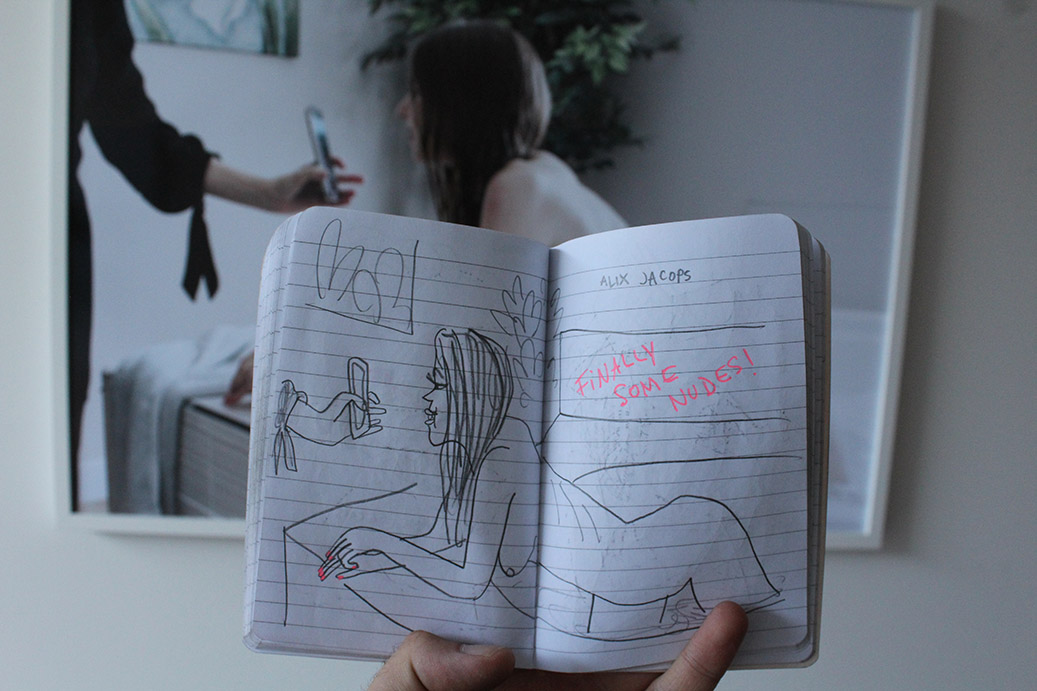 ALIX JACOPS
FINALLY
SOME
NUDES!